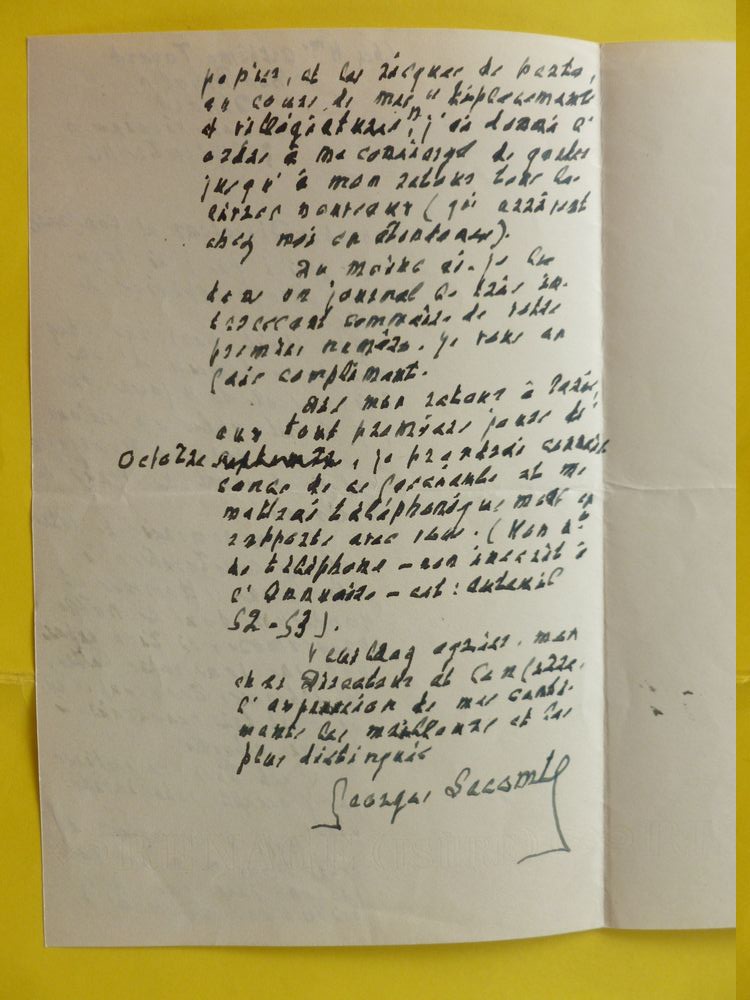 papier, et les risques de perte,
au cours de mes "déplacements
et villégiatures", j'ai donné l'
ordre à ma concierge de garder
jusqu'à mon retour tous les
livres nouveaux (qui arrivent
chez moi en abondance).
Au moins ai-je lu
dans un journal le très in-
téressant sommaire de votre
premier numéro. Je vous en
fais compliment.
Dès mon retour à Paris,
aux tout premiers jours d'
Octobre, je prendrai connais-
sance de ce et me
mettrai téléphoniquement en
rapports avec vous. (Mon n°
de téléphone – non inscrit à
l'Annuaire – est : Auteuil
52-53).
Veuillez agréer, mon
cher Directeur et Confrère,
l'expression de mes senti-
ments les meilleurs et les
plus distingués
Georges Lecomte